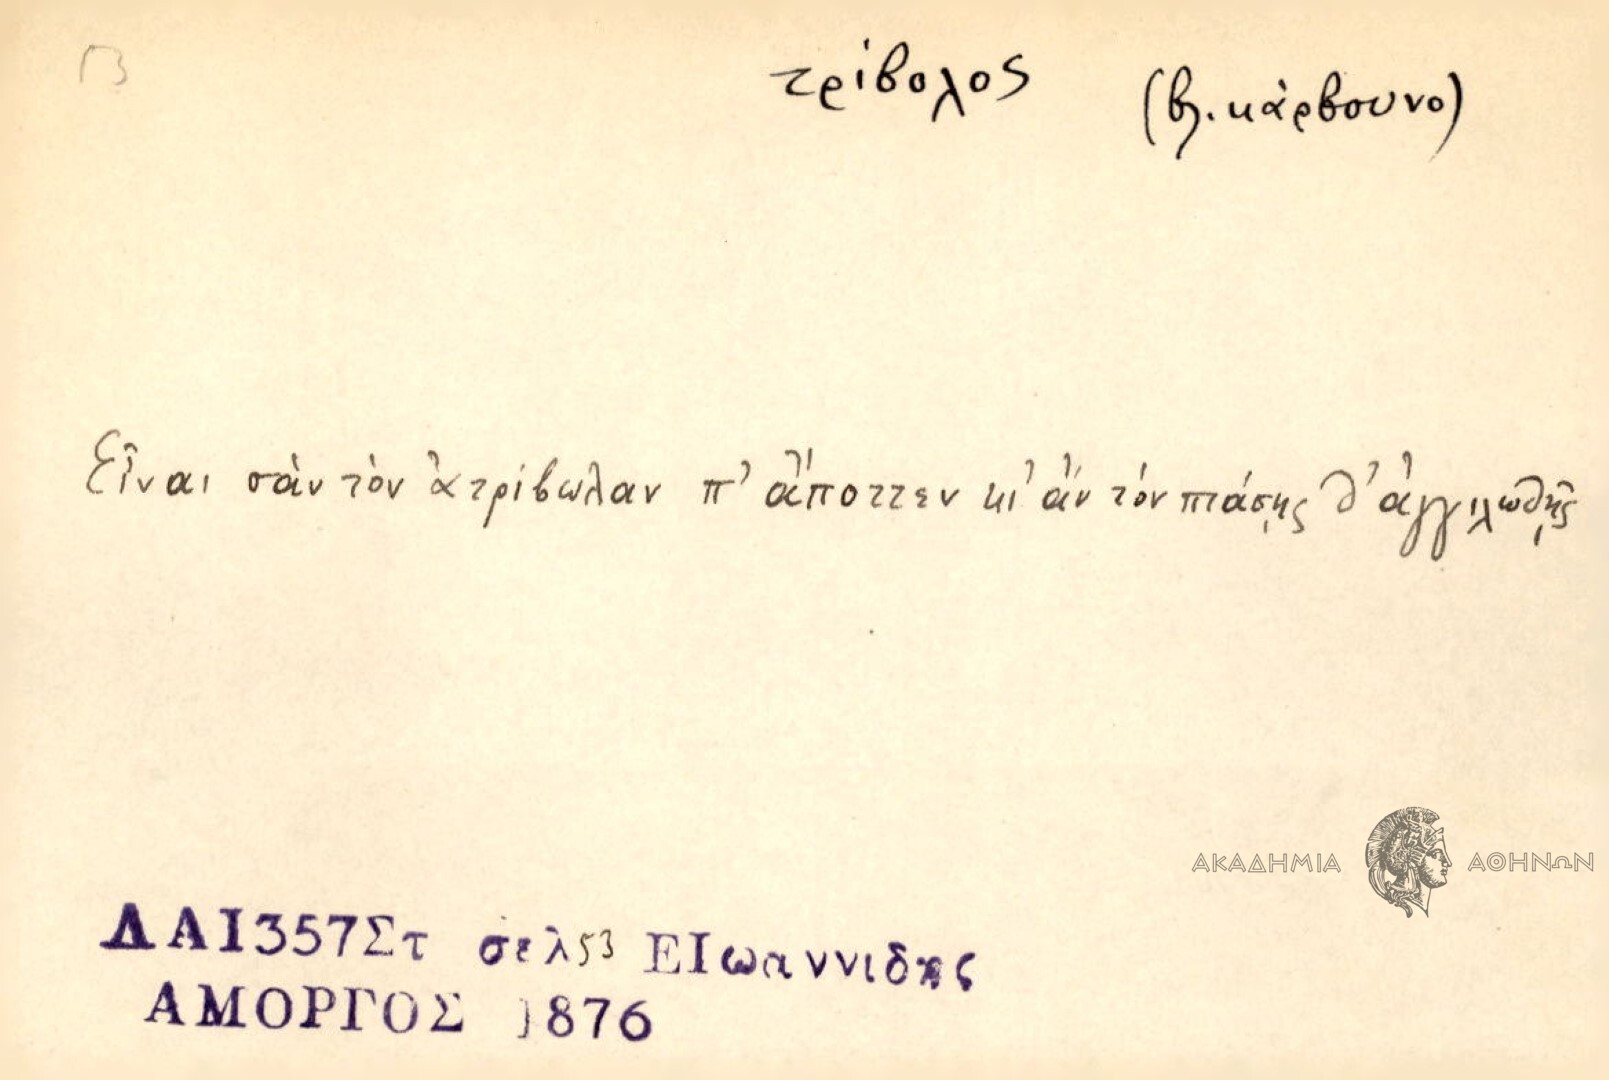 τρίβολος (βλ. κάρβουνο)
Εἶναι σὰν τὸν ἀτρίβωλαν π' ἅποττεν κι' ἂν τὸν πιάσῃς θ' ἀγγιλωθῇς
ΑΚΑΔΗΜΙΑ ΑΘΗΝΩΝ
ΔΑΙ357Στ σελ53 ΕΙωαννιδης
ΑΜΟΡΓΟΣ 1876